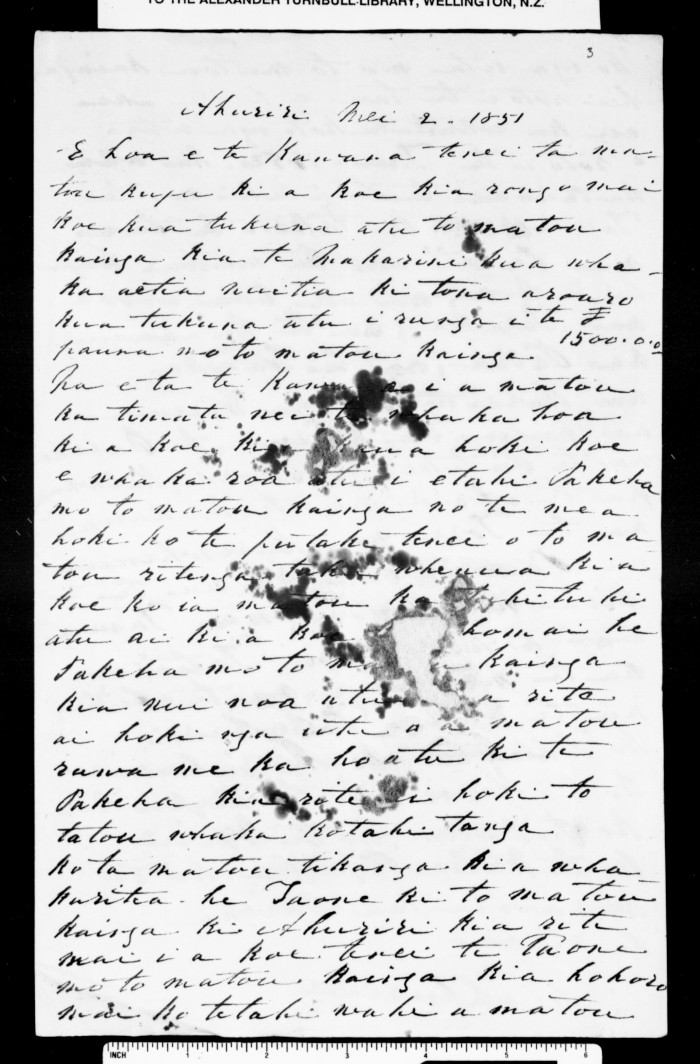 TO THE ALEXANDER TURNBULL LIBRARY, WELLINGTON, N.Z.
3
Ahuriri Mei 2. 1851
E hoa e te Kawana tenei ta ma-
tou kupu ki a koe kia rongo mai
koe kua tukuna atu to matou
kainga kia te Makarini kua wha-
ka aetia nuitia ki tona aroaro
kua tukuna atu i runga i te £
1500.0.0
pauna mo to matou kainga
Na e ta te Kawana i a matou
ka timata nei te whaka hoa
ki a koe hoki koe
e whaka roa atu i etahi Pakeha
mo to matou kainga no te mea
hoki ko te putake tenei o to ma
tou ritenga tuku whenua kia
koe ko ia matou ka tuhituhi
atu ai ki a koe homai he
Pakeha mo to kainga
kia nui noa atu rite
ai hoki nga utu o a matou
rawa me ka hoatu ki te
Pakeha kia rite ai hoki to
tatou whaka kotahi tanga
ko ta matou tikanga kia wha
karitea he Taone ki to matou
kainga ki Ahuriri kia rite
mai i a koe tenei te Taone
mo to matou kainga kia hohoro
mai ko tetahi wahi a matou
INCH 1 2 3 4 5 6